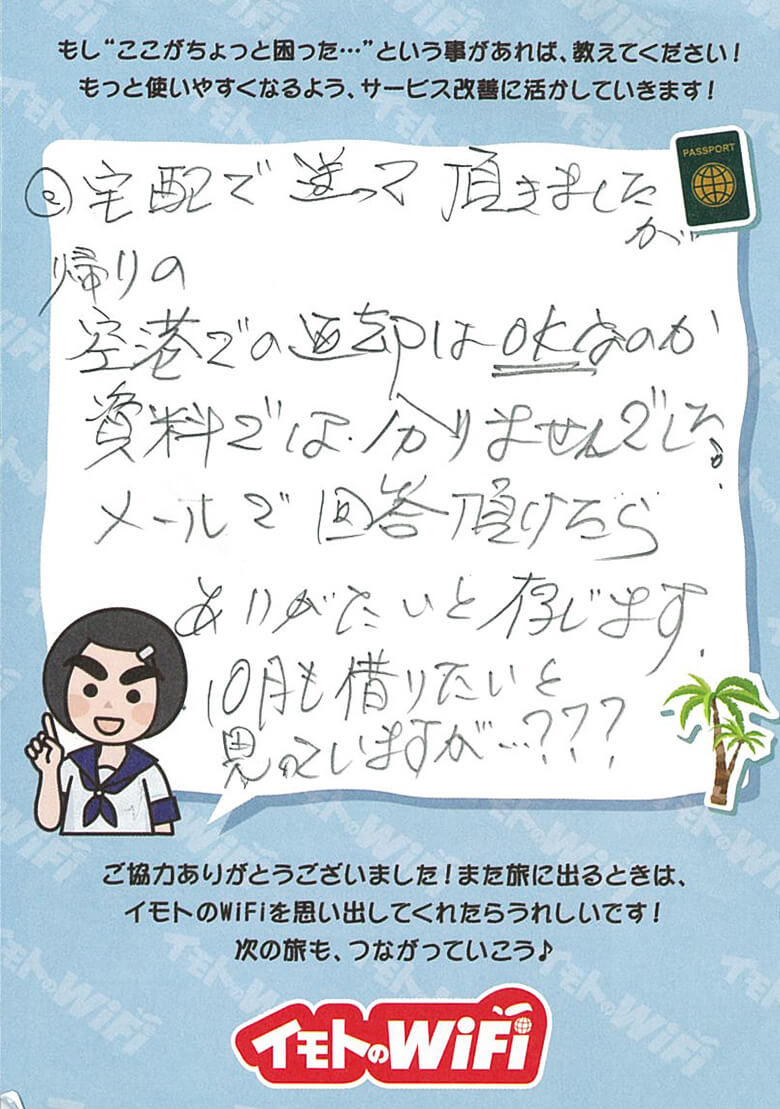 もし“ここがちょっと困った…”という事があれば、教えてください！
もっと使いやすくなるよう、サービス改善に活かしていきます！
PASSPORT
② 宅配で送って頂きました
が
帰りの
空港での返却はOKなのか
資料では分りませんでした。
メールで回答頂けたら
ありがたいと存じます。
10月も借りたいと
思っていますが…???
ご協力ありがとうございました！また旅に出るときは、
イモトのWiFiを思い出してくれたらうれしいです！
次の旅も、つながっていこう♪
イモトのWiFi